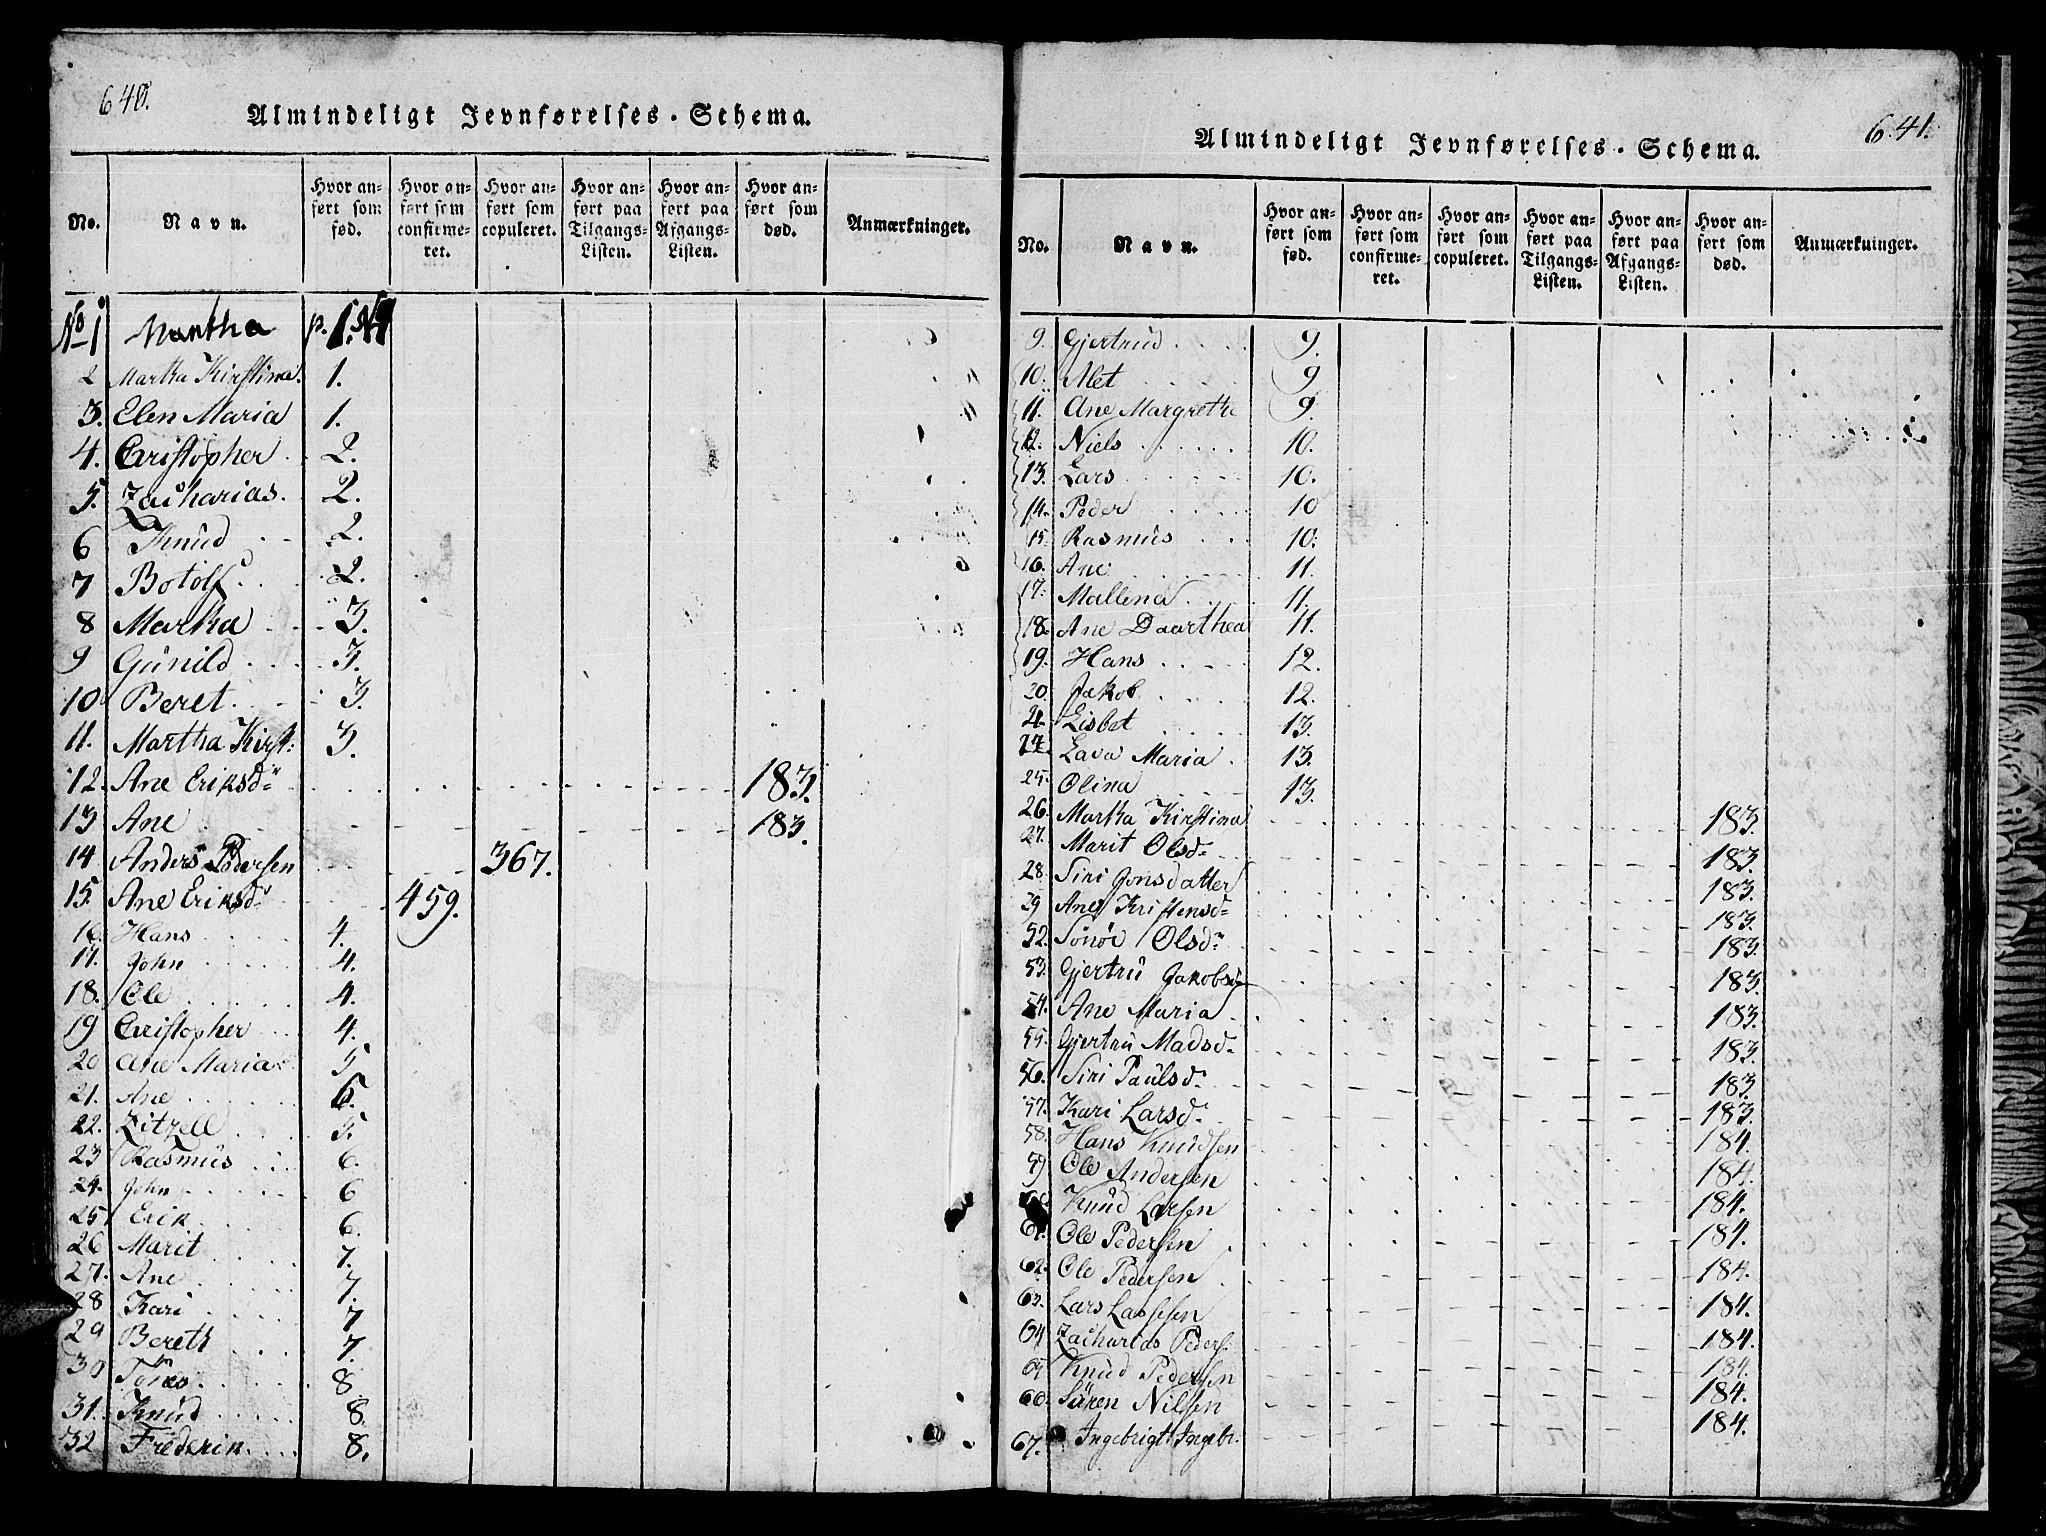 640.
Almindeligt Jevnførelses-Schema.
No.
Navn.
Hvor anført som fød.
Hvor anført som confirmeret.
Hvor anført som copuleret.
Hvor anført paa Tilgangs-Listen.
Hvor anført paa Afgangs-Listen.
Hvor anført som død.
Anmærkninger.
No 1 Martha p. 1.
2 Martha Kirstina. 1.
3. Elen Maria 1.
4. Christopher 2.
5. Zacharias. 2.
6 Knud 2.
7 Botolf 2.
8 Martha 3.
9 Gunild 3.
10 Beret 3.
11. Martha Kirst: 3.
12. Ane Eriksd 183.
13 Ane 183.
14 Anders Pedersen 367.
15. Ane Eriksd 459.
16. Hans 4.
17. John 4.
18. Ole 4.
19 Christopher 4.
20 Ane Maria 5
21. Ane 5.
22. Zitzell 5.
23 Rasmus 6.
24. John 6
25 Erik 6.
26 Marit 7.
27. Ane 7.
28 Kari 7
29 Bereth 7.
30 8.
31. Knud 8.
32 Frederik 8.
641.
Almindeligt Jevnførelses-Schema.
No.
Navn.
Hvor anført som fød.
Hvor anført som confirmeret.
Hvor anført som copuleret.
Hvor anført paa Tilgangs-Listen.
Hvor anført paa Afgangs-Listen.
Hvor anført som død.
Anmærkninger.
9. Gjertrud 9.
10. Met 9
11. Ane Margrethe 9.
12. Niels 10.
13. Lars 10.
14. Peder 10
15. Rasmus 10.
16. Ane 11.
17. Mallena 11.
18. Ane Daarthea 11.
19. Hans 12.
20. Jakob 12.
21. Lisbet 13.
Lava Maria 13.
25. Olina 13.
26. Martha Kirstina 183.
27. Marit Olsd 183.
28. Siri Jonsdatter 183.
29 Ane Kristensd 183.
52. Olsd 183.
53. Gjertru Jakobsd 183.
54. Ane Maria 183.
55. Gjertru Madsd 183.
56. Siri Paulsd 183.
57. Kari Larsd 183.
58. Hans Knudsen 184.
59 Ole Andersen 184.
Knud Larsen 184.
61. Ole Pedersen 184.
62. Ole Pedersen 184.
63. Lars Lassesen 184.
64 Zacharias Peders: 184.
65 Knud Pedersen 184.
66. Sören Nilsen 184.
67. Ingebrigt Ingebr. 184.